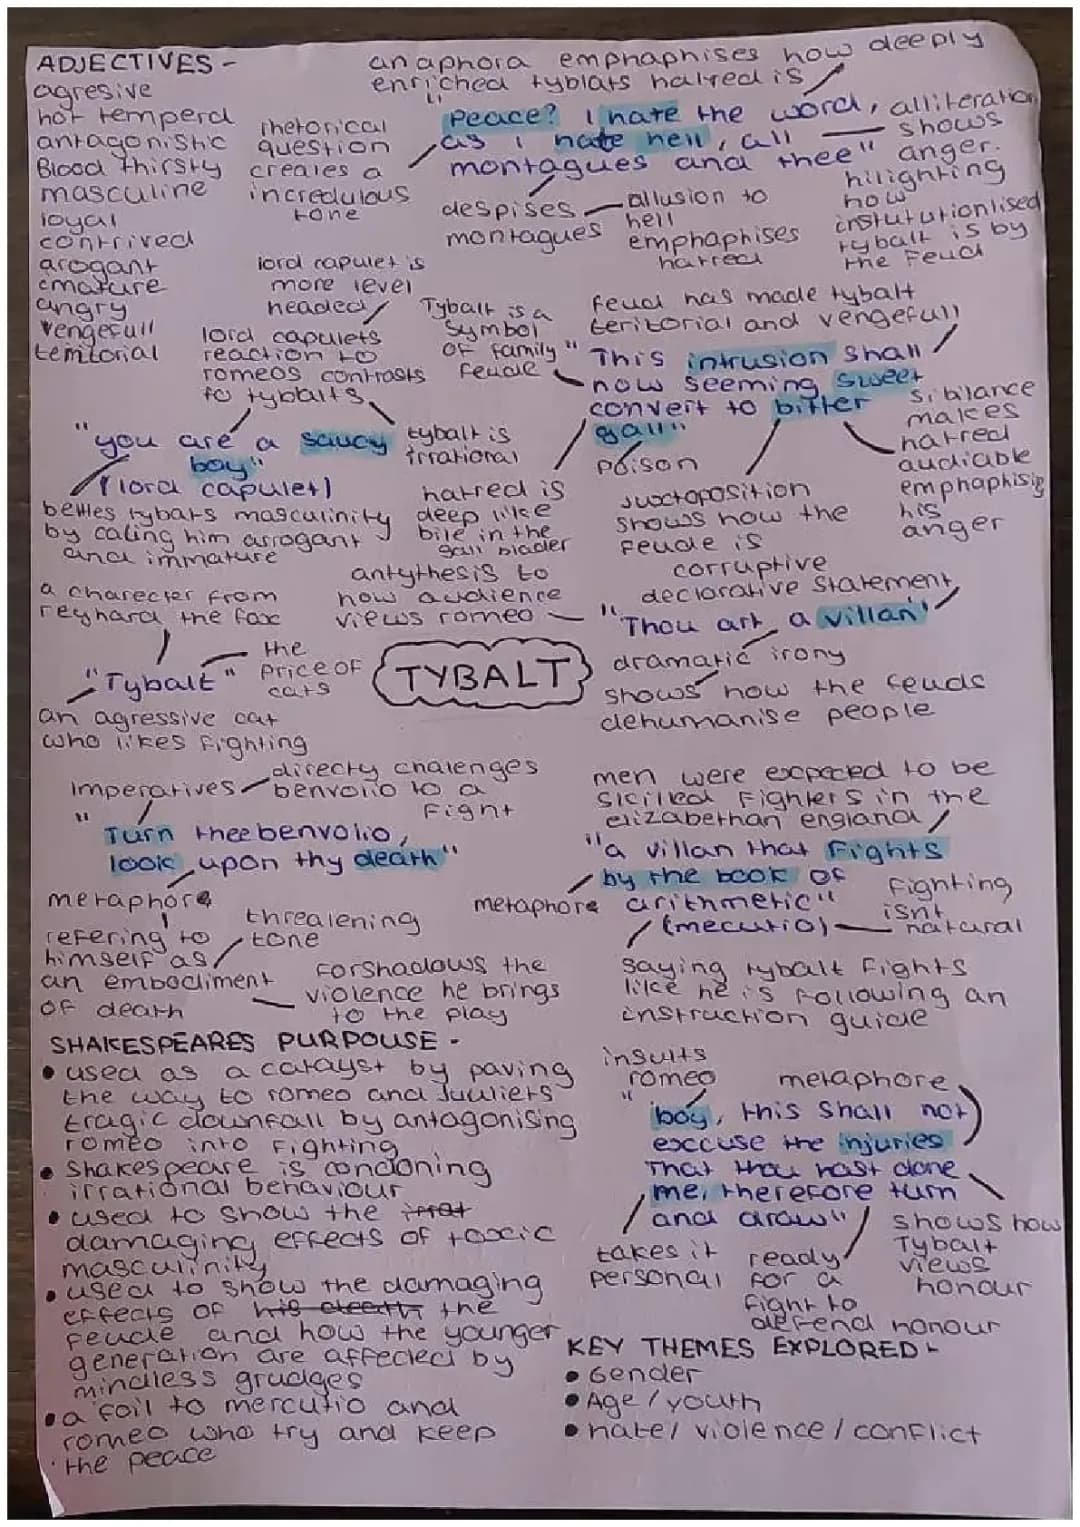 ADJECTIVES -
agresive
hot temperd
antagonistic
Blood thirsty
masculine
loyal
contrived
arogant
emature
angry
vengefull
teritorial
anaphora emphaphises how deeply
enriched tyblats hatred is
"Peace? I hate the word,
as i hate hell, all
montagues and thee"
alliteration
shows
anger.
hilighting
how
instututionlised
tybalt is by
the Feud
rhetorical
question
creates a
incredulous
tone
despises
montagues
allusion to
hell
emphaphises
hatred
lord capulet is
more level
headed
lord capulets
reaction to
romeos contrasts
to tybalts
Tybalt is a
symbol
OF family
feude
feud has made tybalt
teritorial and vengefull
"This intrusion shall
now seeming sweet
convert to bitter
gall"
sibilance
makes
hatred
audiable
emphaphisig
his
anger
poison
juxtoposition
shows how the
feude is
corruptive
"you are a saucy
boy"
(lord capulet)
tybalt is
irrational
belitles tybalts masculinity
by caling him arrogant
and immature
hatred is
deep like
bile in the
gall blader
antythesis to
how audience
views romeo
declarative statement
"Thou art a villan"
dramatic irony
shows how the feuds
dehumanise people
a charecter from
reynard the fox
"Tybalt"
the
price of
cats
TYBALT
an agressive cat
who likes fighting
Imperatives
directly chalenges
benvolio to a
fight
"Turn thee benvolio,
look upon thy death"
metaphore
refering to
himself as
an embodiment
OF death
threatening
tone
forshadows the
violence he brings
to the play
men were expected to be
skilled fighters in the
elizabethan england
"a villan that fights
by the book OF
arithmetic"
(mecutio)
metaphore
fighting
isnt
natural
saying tybalt fights
like he is following an
instruction guide
SHAKESPEARES PURPOUSE -
• used as a catayst by paving
the way to romeo and Juuliets
tragic downfall by antagonising
romeo into fighting
• Shakespeare is condoning
irrational behaviour
• used to show the irrat
damaging effects of toxic
masculinity
• used to show the damaging
effects of his death the
feude and how the younger
generation are affected by
mindless grudges
• a foil to mercutio and
romeo who try and keep
the peace
insults
romeo
metaphore
"boy, this shall not
exccuse the injuries
That thou hast done
me, therefore turn
and draw"
takes it
personal
ready
for a
fight to
defend honour
shows how
Tybalt
views
honour
KEY THEMES EXPLORED -
• Gender
• Age / youth
• hate / violence / conflict